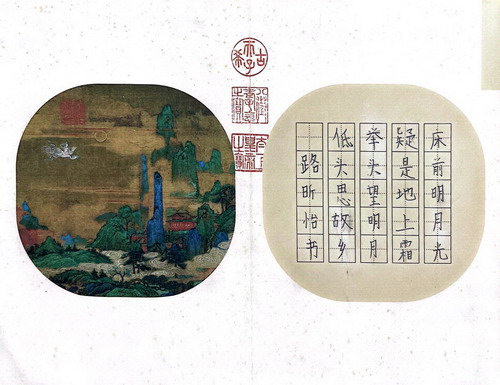 古希天子
床前明月光
疑是地上霜
举头望明月
低头思故乡
路昕怡书